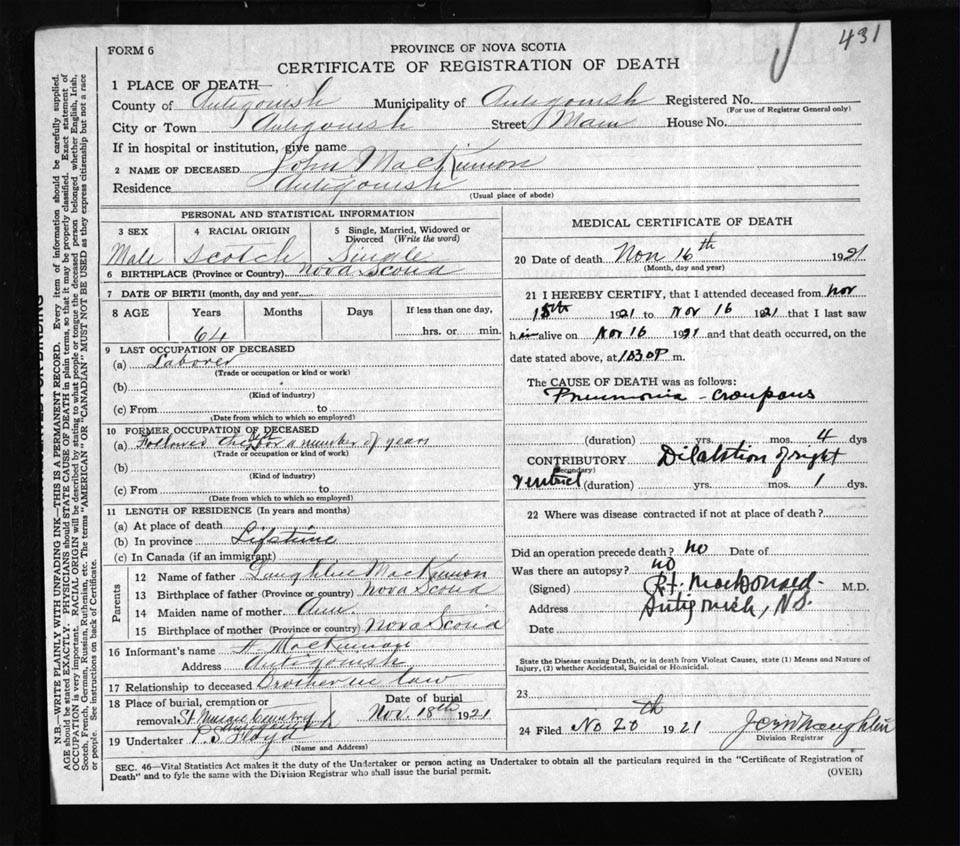 431
FORM 6
PROVINCE OF NOVA SCOTIA
CERTIFICATE OF REGISTRATION OF DEATH
1 PLACE OF DEATH—
County of Antigonish Municipality of Antigonish Registered No.
(For use of Registrar General only)
City or Town Antigonish Street Main House No.
If in hospital or institution, give name
2 NAME OF DECEASED John MacKinnon
Residence Antigonish
(Usual place of abode)
PERSONAL AND STATISTICAL INFORMATION
3 SEX 4 RACIAL ORIGIN 5 Single, Married, Widowed or Divorced (Write the word)
Male Scotch Single
6 BIRTHPLACE (Province or Country) Nova Scotia
7 DATE OF BIRTH (month, day and year)
8 AGE Years Months Days If less than one day,
64 hrs. or min.
9 LAST OCCUPATION OF DECEASED
(a) Laborer
(Trade or occupation or kind or work)
(b)
(Kind of industry)
(c) From to
(Date from which to which so employed)
10 FORMER OCCUPATION OF DECEASED
(a) Followed the for a number of years
(Trade or occupation or kind of work)
(b)
(Kind of industry)
(c) From to
(Date from which to which so employed)
11 LENGTH OF RESIDENCE (In years and months)
(a) At place of death
(b) In province Lifetime
(c) In Canada (if an immigrant)
Parents
12 Name of father MacKinnon
13 Birthplace of father (Province or country) Nova Scotia
14 Maiden name of mother Ann.
15 Birthplace of mother (Province or country) Nova Scotia
16 Informant's name MacKinnon
Address Antigonish
17 Relationship to deceased Brother in law
18 Place of burial, cremation or Date of burial
removal St Nov. 18th 1921
19 Undertaker P.S. Floyd
(Name and Address)
MEDICAL CERTIFICATE OF DEATH
20 Date of death Nov 16th 1921
(Month, day and year)
21 I HEREBY CERTIFY, that I attended deceased from Nov
15th 1921 to Nov 16 1921 that I last saw
him alive on Nov 16 1921 and that death occurred, on the
date stated above, at P m.
The CAUSE OF DEATH was as follows:
Pneumonia - croupous
(duration) yrs. mos. 4 dys
CONTRIBUTORY Dilatation of right
(Secondary)
(duration) yrs. mos. 1 dys.
22 Where was disease contracted if not at place of death?
Did an operation precede death? no Date of
Was there an autopsy? no
(Signed) MacDonald M.D.
Address Antigonish, N.S.
Date
State the Disease causing Death, or in death from Violent Causes, state (1) Means and Nature of
Injury, (2) whether Accidental, Suicidal or Homicidal.
23
24 Filed No 20th 1921
Division Registrar
SEC. 46—Vital Statistics Act makes it the duty of the Undertaker or person acting as Undertaker to obtain all the particulars required in the "Certificate of Registration of
Death" and to fyle the same with the Division Registrar who shall issue the burial permit.
(OVER)
N.B.—WRITE PLAINLY WITH UNFADING INK—THIS IS A PERMANENT RECORD. Every item of information should be carefully supplied.
AGE should be stated EXACTLY. PHYSICIANS should STATE CAUSE OF DEATH in plain terms, so that it may be properly classified. Exact statement of
OCCUPATION is very important. RACIAL ORIGIN will be described by stating to what people or tongue the deceased person belonged, whether English, Irish,
Scotch, French, German, Russian, Ruthenian, etc. The terms "AMERICAN" OR "CANADIAN" MUST NOT BE USED as they express citizenship but not a race
or people. See instructions on back of Certificate.